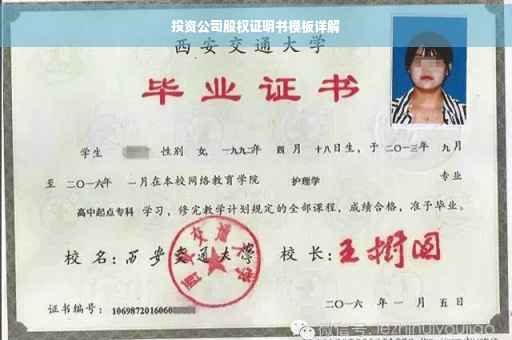 投资公司股权证明书模板详解
西安交通大学
毕业证书
学生 性别 女, 一九九二年 四 月 十八日生, 于 二〇一三年 九月
至 二〇一六年 一月在本校网络教育学院 护理学 专业
高中起点专科 学习, 修完教学计划规定的全部课程, 成绩合格, 准予毕业。
校 名: 西安交通大学 校 长: 王树国
西安交通大学
证书编号: 1069872016060
二〇一六 年 一 月 五 日
微信号: lezhihuiyoujiao